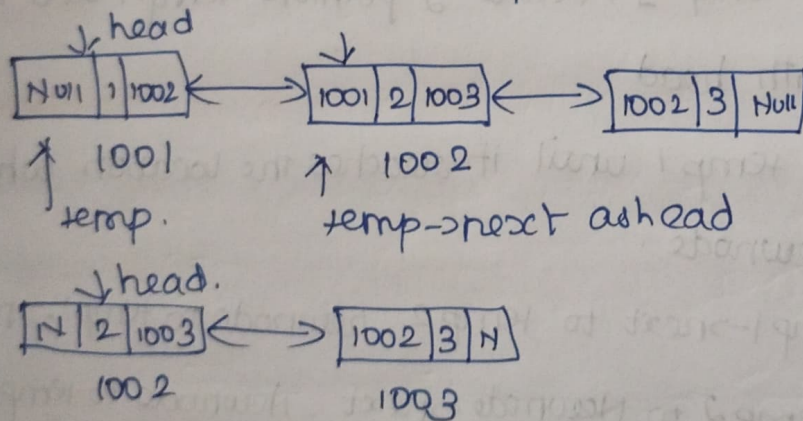 head
Null 1 1002 1001 2 1003 1002 3 Null
1001 1002
temp. temp->next as head
head.
N 2 1003 1002 3 N
1002 1003